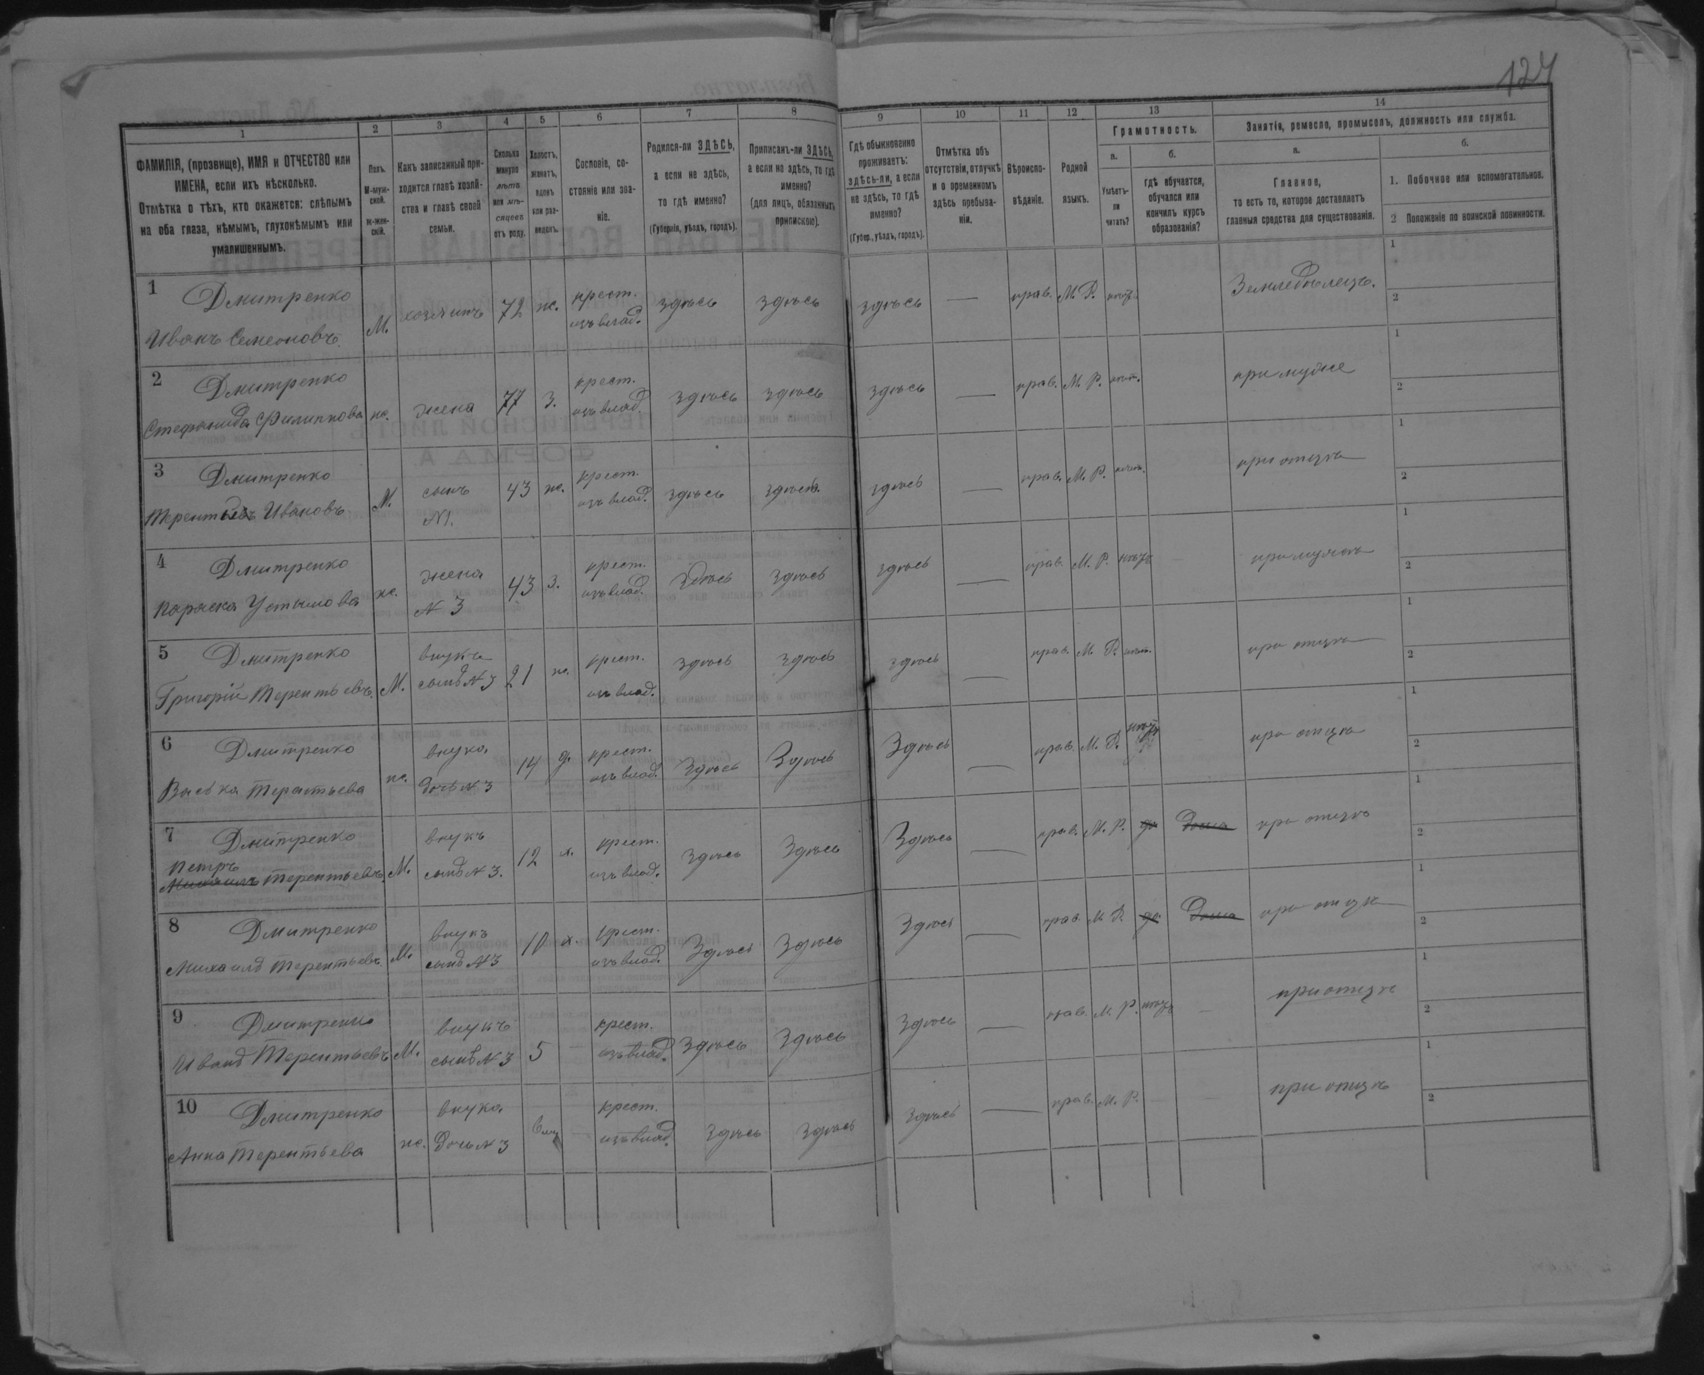 127
1
2
3
4
5
6
7
8
9
10
11
12
13
14
ФАМИЛІЯ, (прозвище), ИМЯ и ОТЧЕСТВО или
ИМЕНА, если ихъ нѣсколько.
Отмѣтка о тѣхъ, кто окажется: слѣпымъ
на оба глаза, нѣмымъ, глухонѣмымъ или
умалишеннымъ.
Полъ.
М-муж-
ской.
ж-жен-
скій.
Какъ записанный при-
ходится главѣ хозяй-
ства и главѣ своей
семьи.
Сколько
минуло
лѣтъ
или мѣ-
сяцевъ
отъ роду.
Холостъ,
женатъ,
вдовъ
или раз-
веденъ.
Сословіе, со-
стояніе или зва-
ніе.
Родился-ли ЗДѢСЬ,
а если не здѣсь,
то гдѣ именно?
(Губернія, уѣздъ, городъ).
Приписанъ-ли ЗДѢСЬ,
а если не здѣсь, то гдѣ
именно?
(для лицъ, обязанныхъ
припискою).
Гдѣ обыкновенно
проживаетъ:
здѣсь-ли, а если
не здѣсь, то гдѣ
именно?
(Губер., уѣздъ, городъ).
Отмѣтка объ
отсутствіи, отлучкѣ
и о временномъ
здѣсь пребыва-
ніи.
Вѣроиспо-
вѣданіе.
Родной
языкъ.
Грамотность.
а.
б.
Умѣетъ-
ли
читать?
гдѣ обучается,
обучался или
кончилъ курсъ
образованія?
Занятіе, ремесло, промыселъ, должность или служба.
а.
б.
Главное,
то есть то, которое доставляетъ
главныя средства для существованія.
1. Побочное или вспомогательное.
2 Положеніе по воинской повинности.
1 Дмитренко
Иванъ Семеоновъ М. хозяинъ 72 ж. крест. изъ влад. здѣсь здѣсь здѣсь — прав. М. Р. Земледѣлецъ. 1 2
2 Дмитренко
Стефанида Филиппова ж. жена 77 З. крест. изъ влад. здѣсь здѣсь здѣсь — прав. М. Р. при мужѣ 1 2
3 Дмитренко
Терентій Ивановъ М. сынъ N1. 43 ж. крест. изъ влад. здѣсь здѣсь здѣсь — прав. М. Р. при отцѣ 1 2
4 Дмитренко
Параска Устимова ж. жена N 3 43 з. крест. изъ влад. здѣсь здѣсь здѣсь — прав. М. Р. при мужѣ 1 2
5 Дмитренко
Григорій Терентьевъ М. внукъ сынъ N 3 21 ж. крест. изъ влад. здѣсь здѣсь здѣсь — прав. М. Р. при отцѣ 1 2
6 Дмитренко
Васька Терентьева ж. внука дочь N 3 14 д. крест. изъ влад. Здѣсь Здѣсь Здѣсь — прав. М. Р. при отцѣ 1 2
7 Дмитренко
Петръ
Михаилъ Терентьевъ М. внукъ сынъ N 3. 12 х. крест. изъ влад. Здѣсь Здѣсь Здѣсь — прав. М. Р. да Дома при отцѣ 1 2
8 Дмитренко
Михаилъ Терентьевъ М. внукъ сынъ N 3 10 х. крест. изъ влад. Здѣсь Здѣсь Здѣсь — прав. М. Р. да Дома при отцѣ 1 2
9 Дмитренко
Иванъ Терентьевъ М. внукъ сынъ N 3 5 крест. изъ влад. Здѣсь Здѣсь Здѣсь — прав. М. Р. при отцѣ 1 2
10 Дмитренко
Анна Терентьева ж. внука Дочь N 3 крест. изъ влад. Здѣсь Здѣсь Здѣсь — прав. М. Р. при отцѣ 1 2